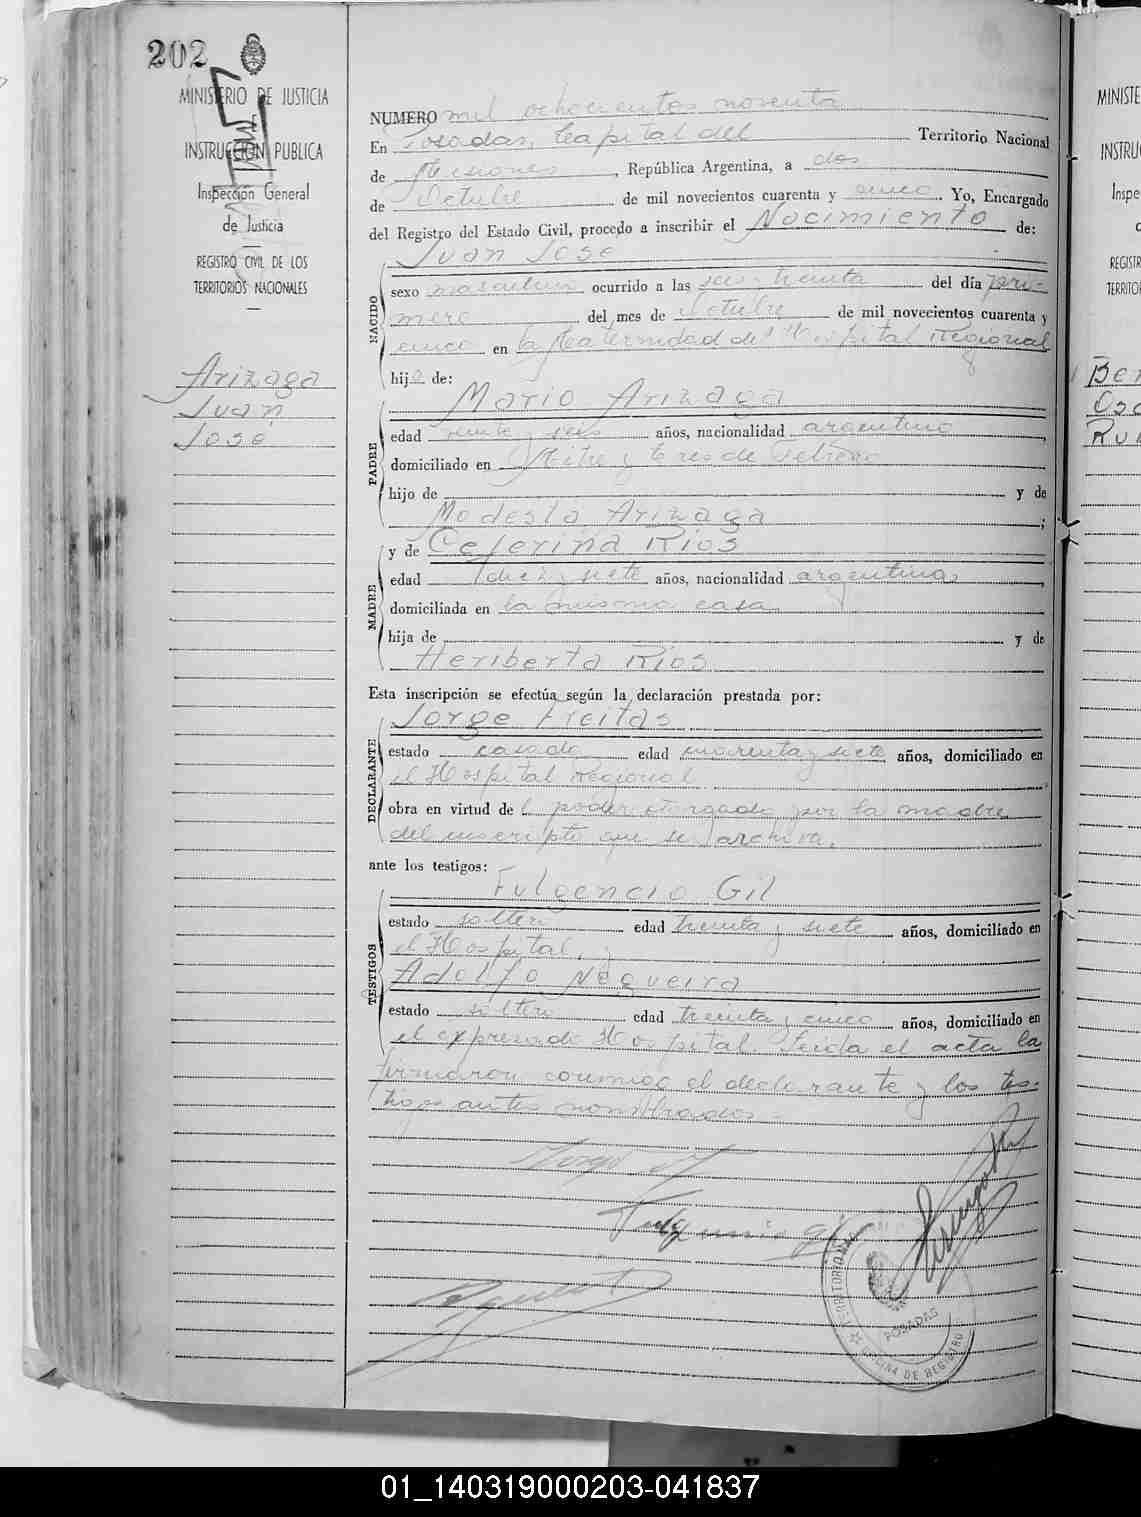 202
MINISTERIO DE JUSTICIA
INSTRUCCIÓN PUBLICA
Inspección General
de Justicia
REGISTRO CIVIL DE LOS
TERRITORIOS NACIONALES
Arizaga
Juan
José
NUMERO mil ochocientos noventa
En Posadas, Capital del Territorio Nacional
de Misiones, República Argentina, a dos
de Octubre de mil novecientos cuarenta y cinco. Yo, Encargado
del Registro del Estado Civil, procedo a inscribir el Nacimiento de:
Juan José
NACIDO
sexo masculino ocurrido a las seis y treinta del día pri-
mero del mes de Octubre de mil novecientos cuarenta y
cinco en la Maternidad del Hospital Regional
hijo de:
Mario Arizaga
PADRE
edad veinte y seis años, nacionalidad argentino,
domiciliado en Mitre y tres de Febrero
hijo de y de
Modesta Arizaga;
y de Ceferina Rios
MADRE
edad diez y siete años, nacionalidad argentina,
domiciliada en la misma casa
hija de y de
Heriberta Rios
Esta inscripción se efectúa según la declaración prestada por:
Jorge Freitas
DECLARANTE
estado casado edad cuarenta y siete años, domiciliado en
el Hospital Regional
obra en virtud del poder otorgado por la madre
del inscripto que se archiva.
ante los testigos:
Fulgencio Gil
TESTIGOS
estado soltero edad treinta y siete años, domiciliado en
el Hospital, y
Adolfo Nogueira
estado soltero edad treinta y cinco años, domiciliado en
el expresado Hospital. Leida el acta la
firmaron conmigo el declarante y los tes-
tigos antes nombrados.=
Fulgencio Gil
TERRITORIO
POSADAS
OFICINA DE REGISTRO
MINISTE
INSTRU
Inspe
REGISTR
TERRITO
Ber
Osc
Rub
01_140319000203-041837